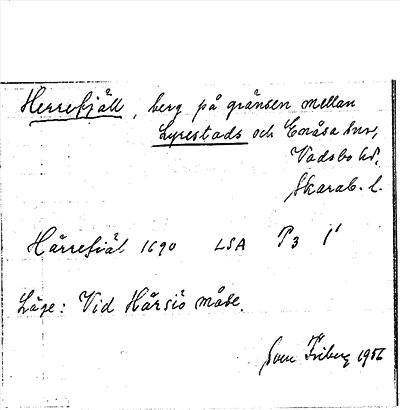 Herrefjäll, berg på gränsen mellan
Lyrestads och Enåsa snr,
Vadsbo hd.
Skarab. l.
Härrefiäl 1690 LSA P3 1¹
Läge: Vid Härsiö måse.
Sven Friberg 1956